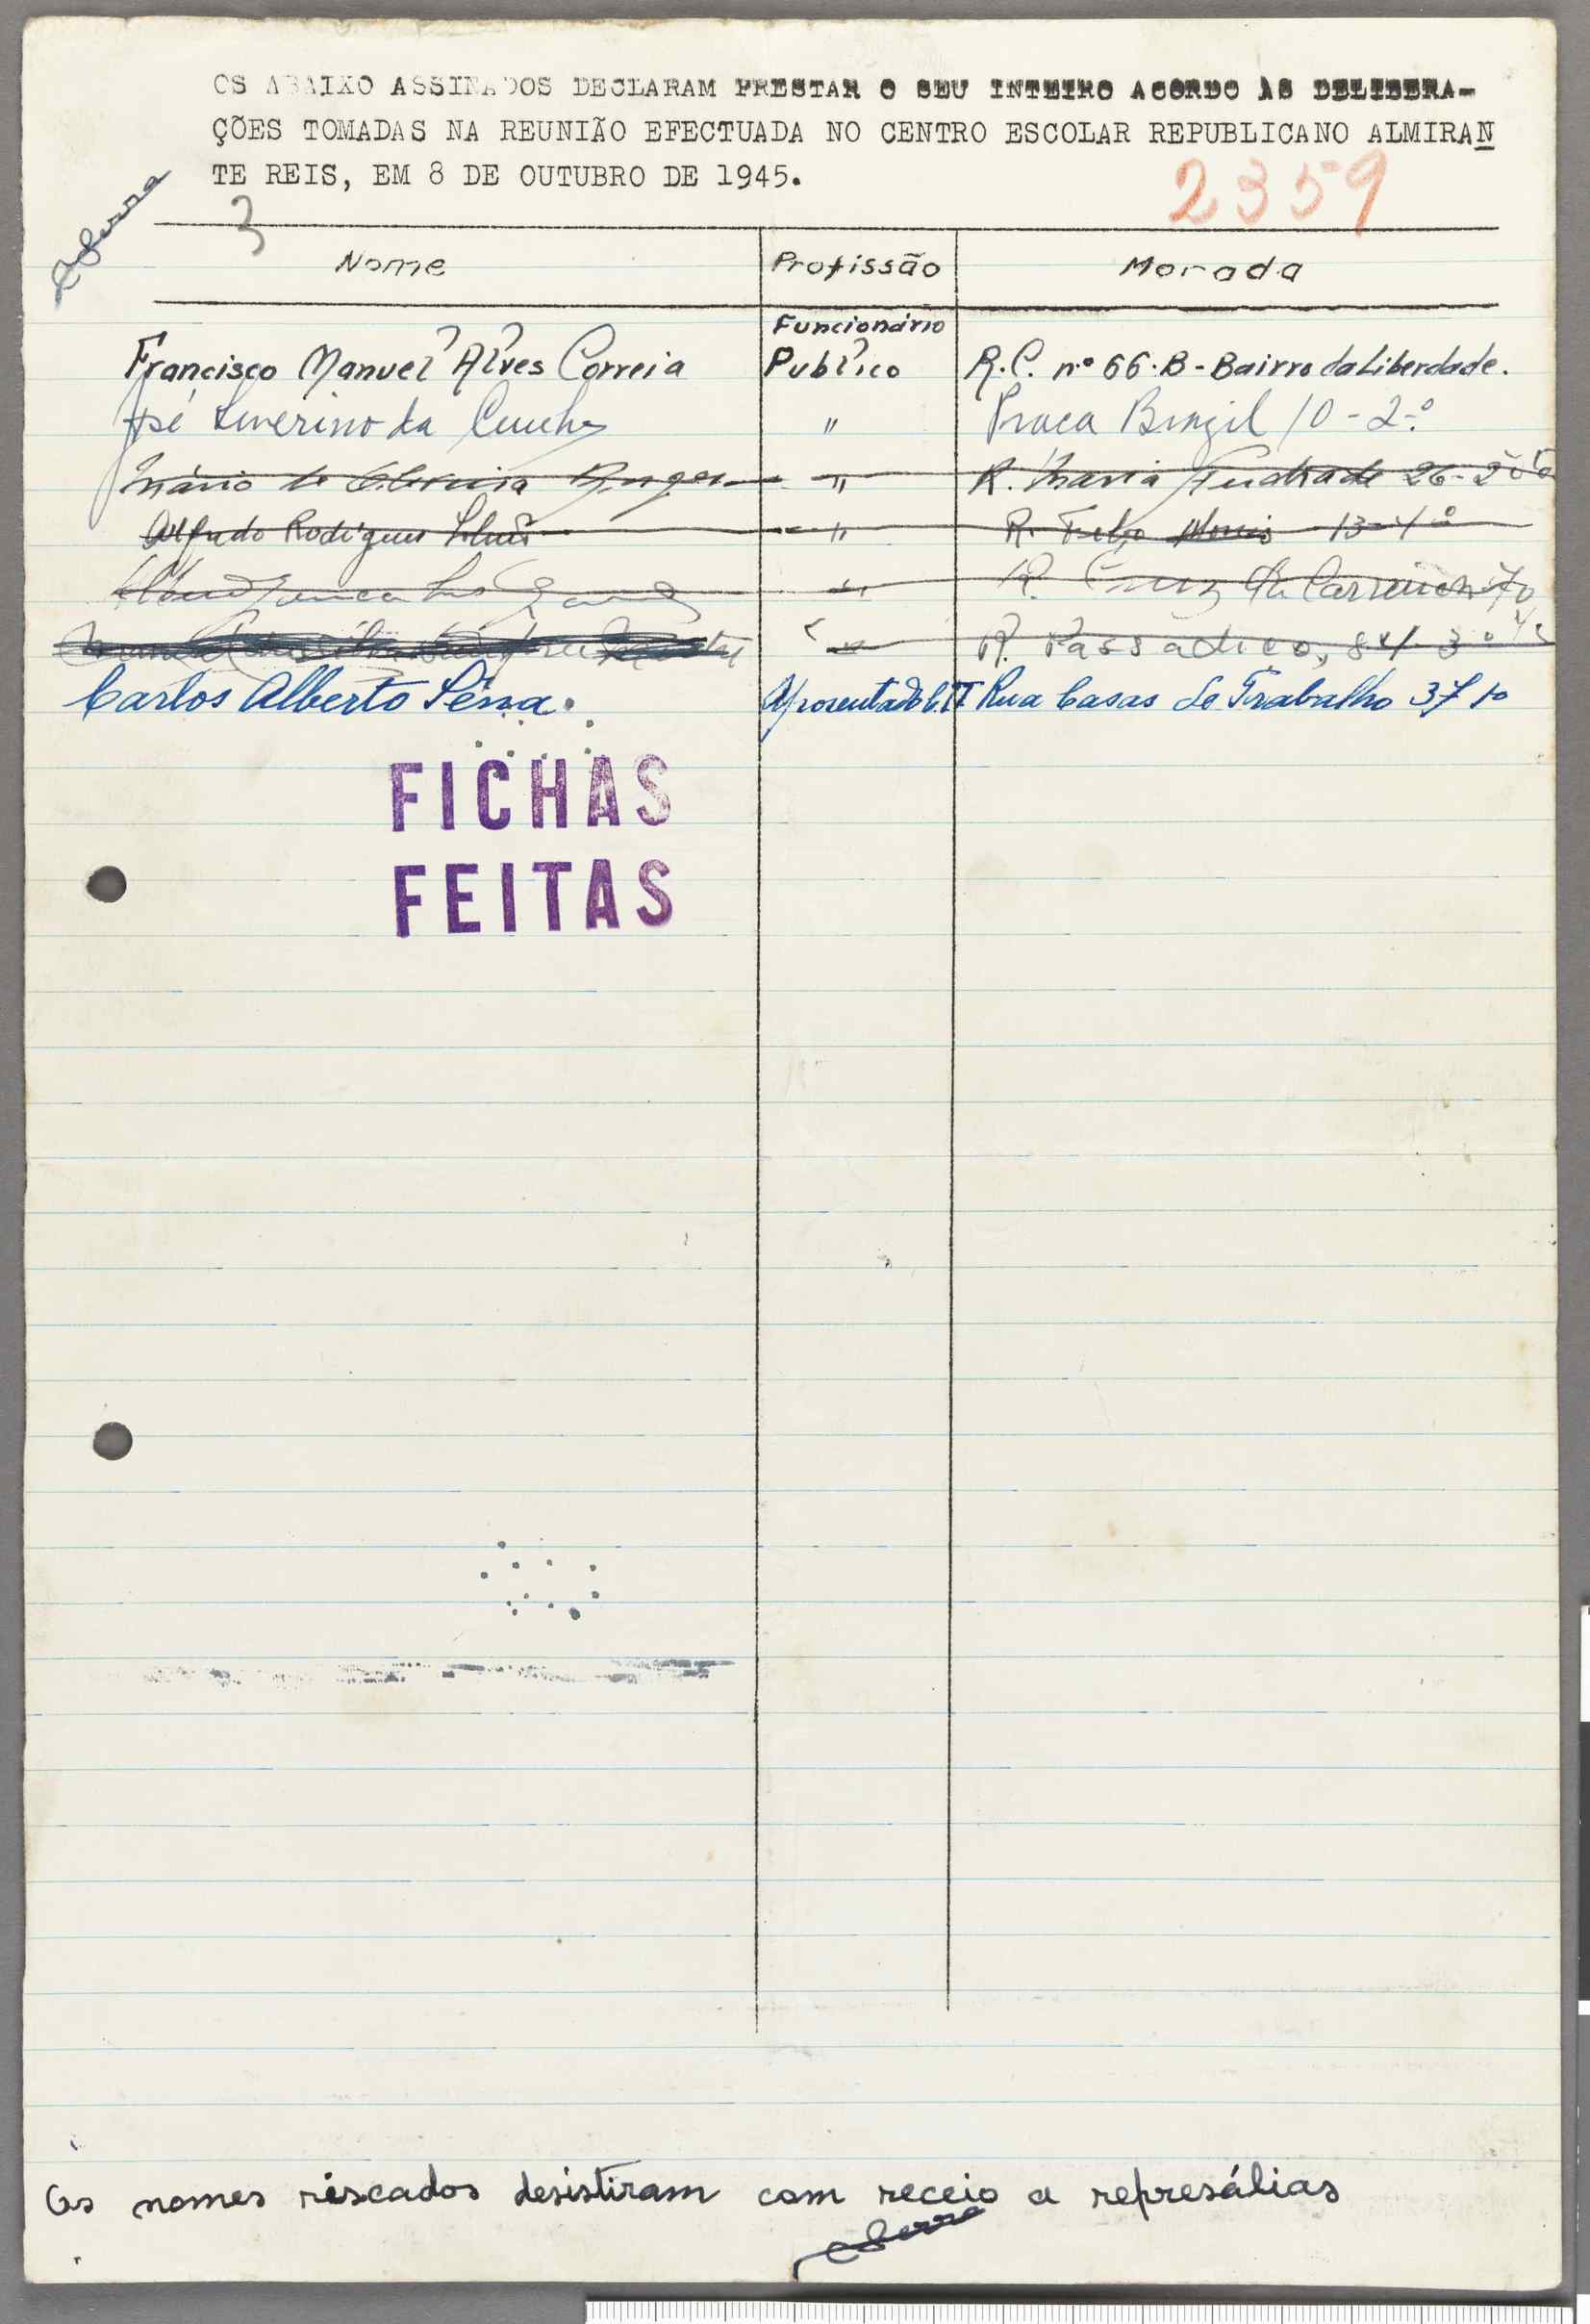 OS ABAIXO ASSINADOS DECLARAM PRESTAR O SEU INTEIRO ACORDO ÀS DELIBERA-
ÇÕES TOMADAS NA REUNIÃO EFECTUADA NO CENTRO ESCOLAR REPUBLICANO ALMIRAN
TE REIS, EM 8 DE OUTUBRO DE 1945.
2359
3
Nome Profissão Morada
Funcionário
Francisco Manuel Alves Correia Publico R.C. nº 66-B - Bairro da Liberdade.
José Severino da Cunha " Praca Brazil 10-2º
Mário de Oliveira " R. Maria Andrade 26-2º
Alfredo Rodrigues " R. 13-4º
" R. Cruz da Carreira 70
" R. Passadiço, 84 3º
Carlos Alberto Séna. Aposentado C.T.T. Rua Casas de Trabalho 37 1º
FICHAS
FEITAS
Os nomes riscados desistiram com receio a represálias